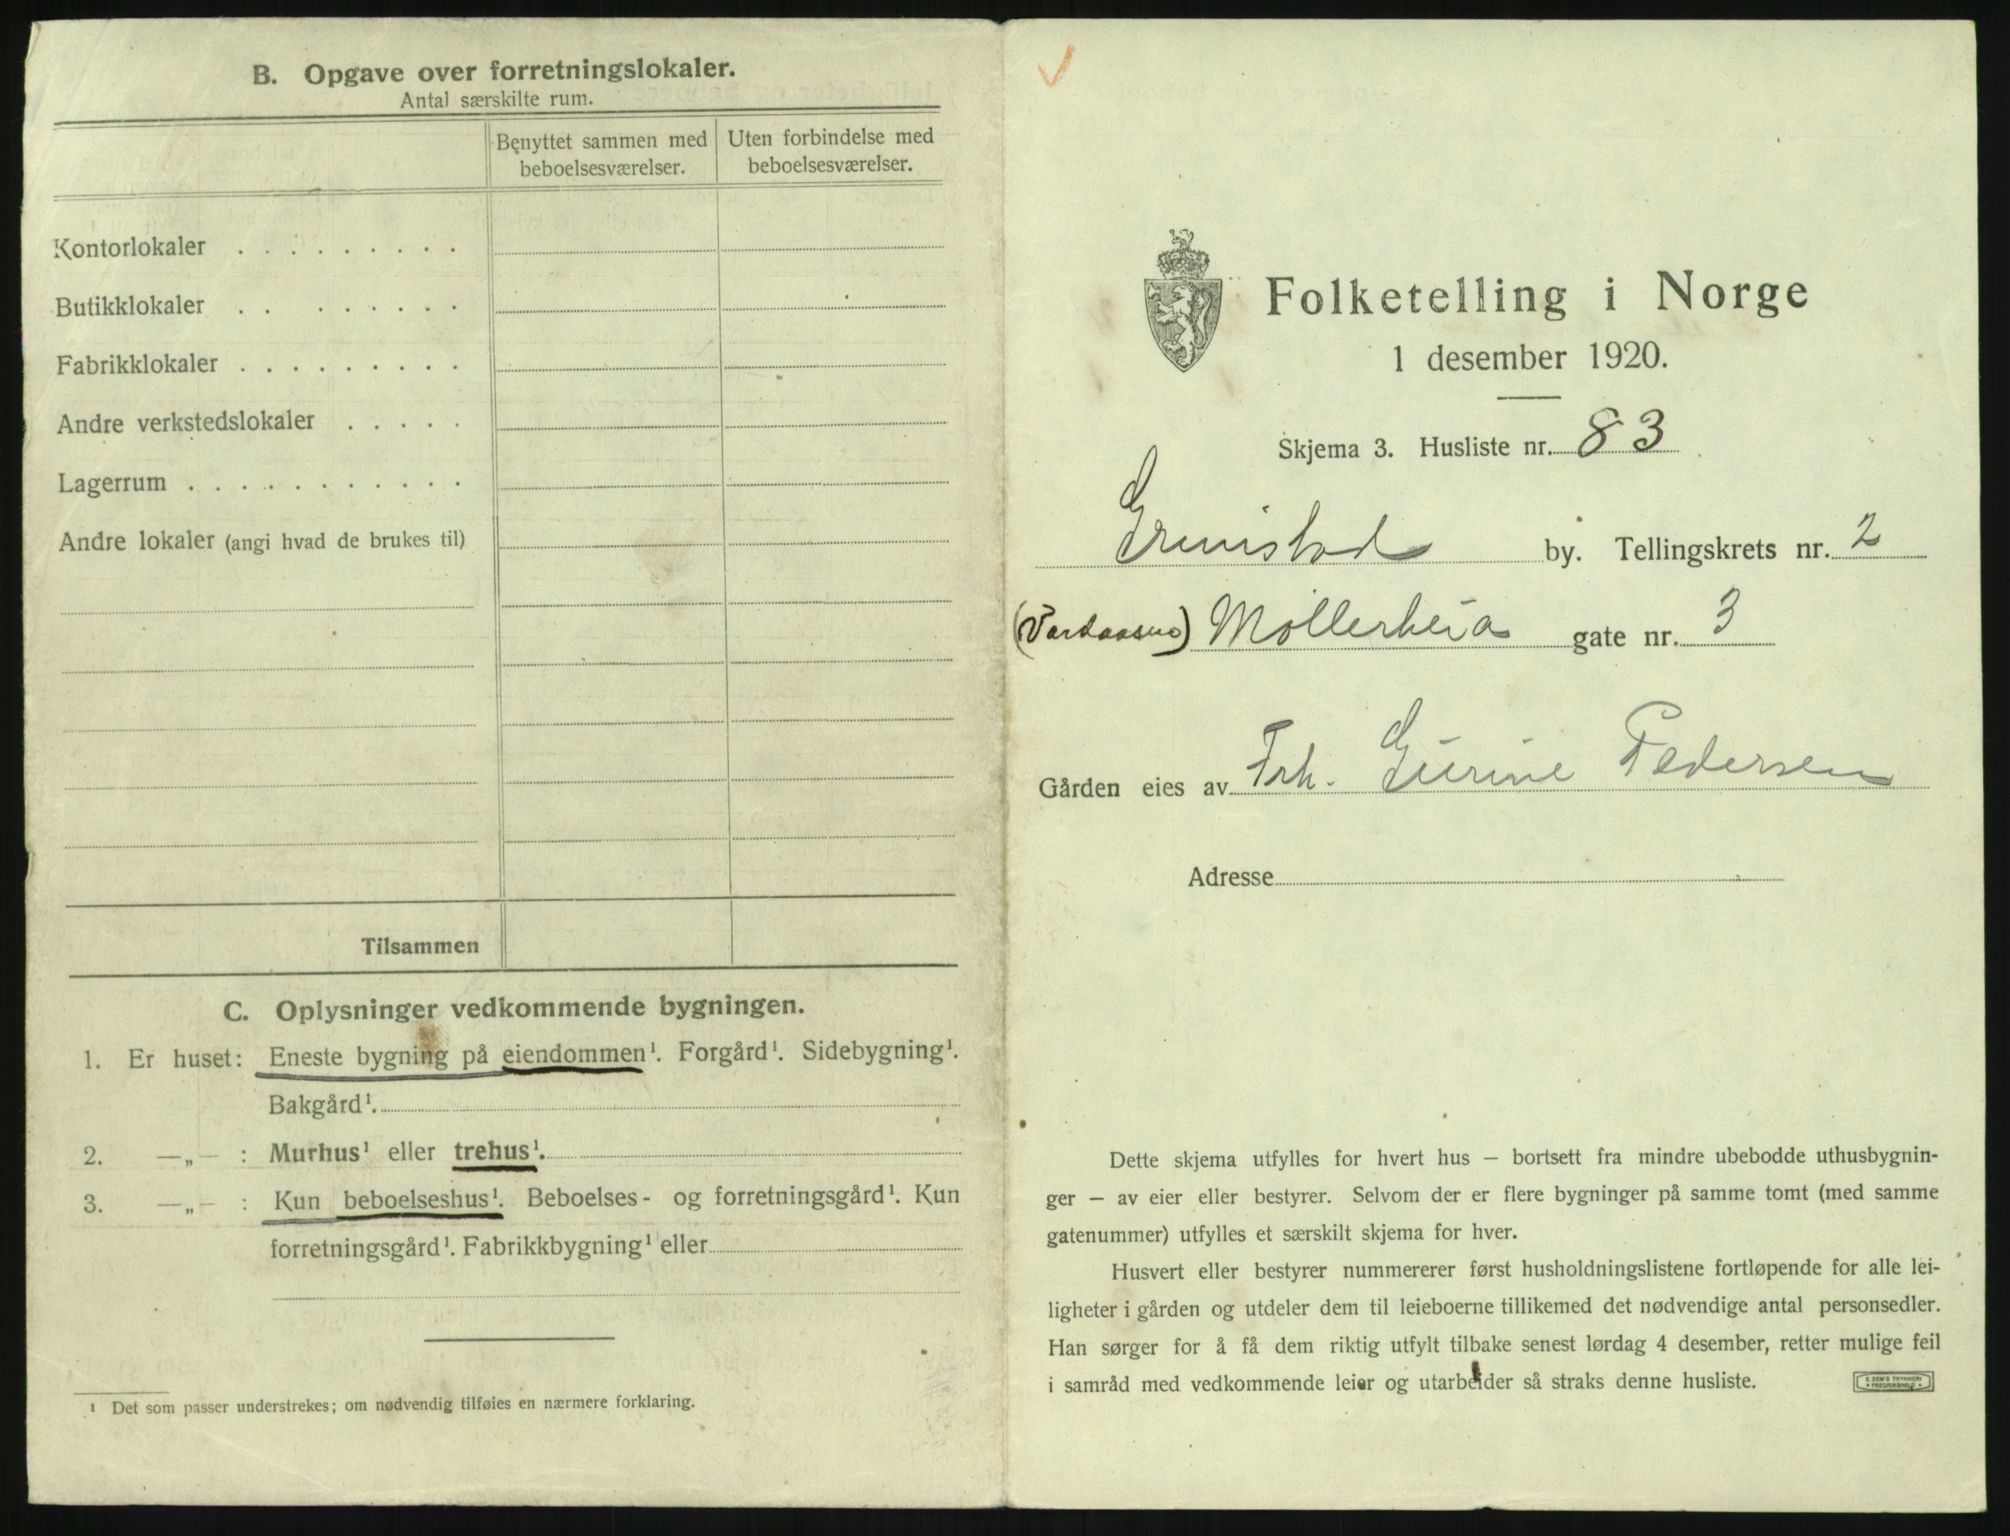 B. Opgave over forretningslokaler.
Antal særskilte rum.
Benyttet sammen med beboelsesværelser.
Uten forbindelse med beboelsesværelser.
Kontorlokaler . . . . . . . . .
Butikklokaler . . . . . . . .
Fabrikklokaler . . . . . . . . .
Andre verkstedslokaler . . . . .
Lagerrum . . . . . . . . . . .
Andre lokaler (angi hvad de brukes til)
Tilsammen
C. Oplysninger vedkommende bygningen.
1. Er huset: Eneste bygning på eiendommen¹. Forgård¹. Sidebygning¹.
Bakgård¹.
2. —„— : Murhus¹ eller trehus¹.
3. —„— : Kun beboelseshus¹. Beboelses- og forretningsgård¹. Kun
forretningsgård¹. Fabrikkbygning¹ eller
¹ Det som passer understrekes; om nødvendig tilføies en nærmere forklaring.
Folketelling i Norge
1 desember 1920.
Skjema 3. Husliste nr. 83
Grimstad by. Tellingskrets nr. 2
(Vardaasen) Møllerheia gate nr. 3
Gården eies av Frk. Gurine Pedersen
Adresse
Dette skjema utfylles for hvert hus – bortsett fra mindre ubebodde uthusbygnin-
ger – av eier eller bestyrer. Selvom der er flere bygninger på samme tomt (med samme
gatenummer) utfylles et særskilt skjema for hver.
Husvert eller bestyrer nummererer først husholdningslistene fortløpende for alle lei-
ligheter i gården og utdeler dem til leieboerne tillikemed det nødvendige antal personsedler.
Han sørger for å få dem riktig utfylt tilbake senest lørdag 4 desember, retter mulige feil
i samråd med vedkommende leier og utarbeider så straks denne husliste.
E. SEM'S TRYKKERI
FREDRIKSHALD